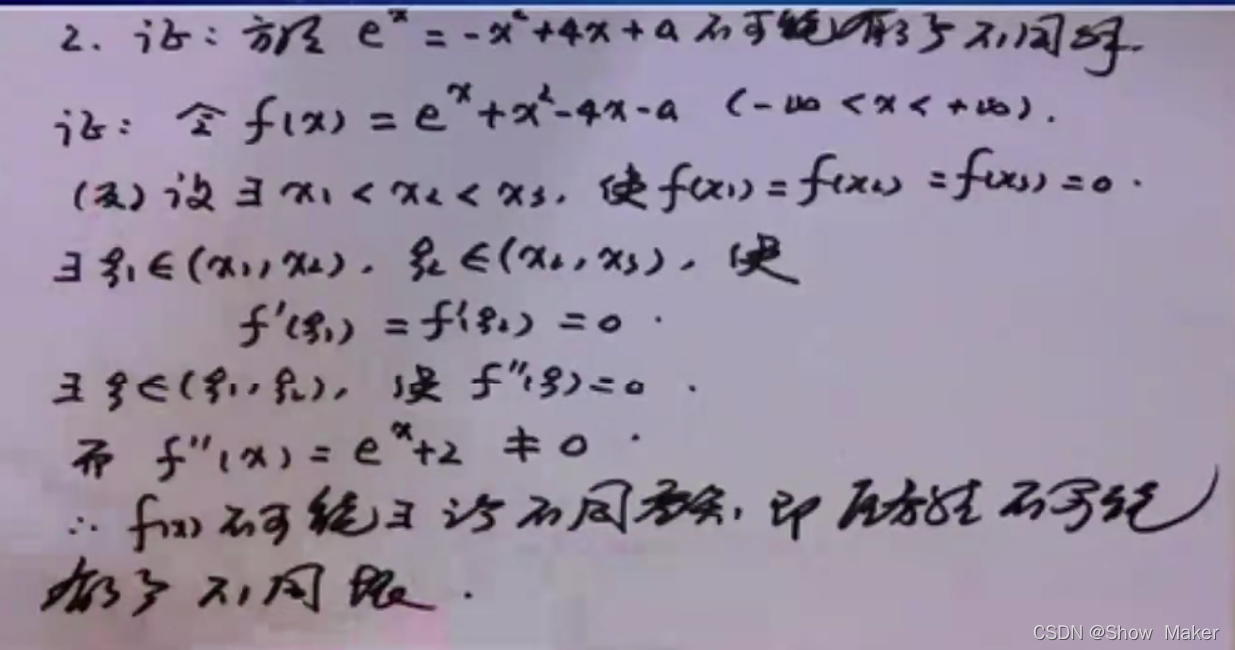 2. 证: 方程 e^x = -x²+4x+a 不可能有3个不同的根.
证: 令 f(x) = e^x+x²-4x-a (-∞ < x < +∞).
(反) 设 ∃ x₁ < x₂ < x₃, 使 f(x₁) = f(x₂) = f(x₃) = 0.
∃ ξ₁ ∈ (x₁, x₂), ξ₂ ∈ (x₂, x₃), 使
f'(ξ₁) = f'(ξ₂) = 0.
∃ ξ ∈ (ξ₁, ξ₂), 使 f''(ξ) = 0.
而 f''(x) = e^x+2 ≠ 0.
∴ f(x) 不可能∃ 不同零点, 即原方程不可能
有3个不同根.
CSDN @Show Maker